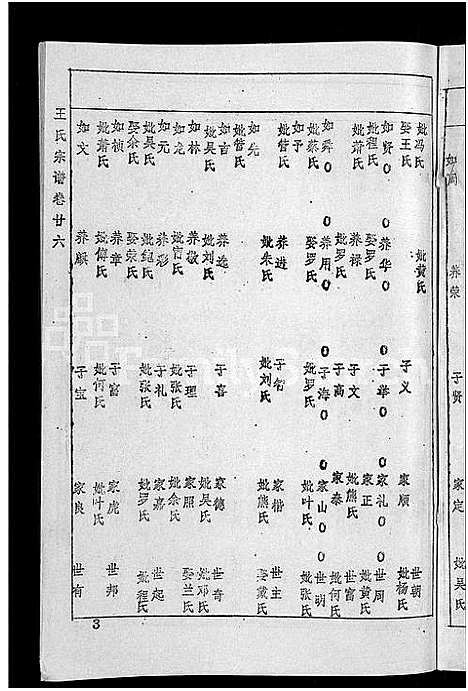 如阁 养荣 子贤 家定 妣吴氏
妣冯氏 妣黄氏 世朝
娶王氏 子义 家顺 妣杨氏
如贤 养华 子举 家礼 世周
妣程氏 娶罗氏 家正 妣黄氏
妣萧氏 养禄 子文 妣熊氏 世富
妣罗氏 子高 家泰 妣何氏
如舜 养用 子海 家山 世明
妣蔡氏 娶罗氏 妣罗氏 妣叶氏 妣张氏
如予
妣管氏 养进 子智 家楷 世主
妣朱氏 妣刘氏 妣熊氏 娶戴氏
如先
妣管氏
如吉 养选 子喜 家德 世奇
妣吴氏 妣刘氏 妣吴氏 妣邓氏
如林 养敬 子理 家照 娶兰氏
如龙 妣官氏 妣张氏 妣余氏
如元 养彩 子礼 家嘉 世起
娶余氏 妣鲍氏 妣张氏 妣罗氏 妣程氏
妣吴氏 娶荣氏
如桢 养章 子富 家虎 世邦
妣萧氏 妣傅氏 妣何氏 妣叶氏
如文 养麒 子宝 家良 世有
王氏宗谱卷廿六
3